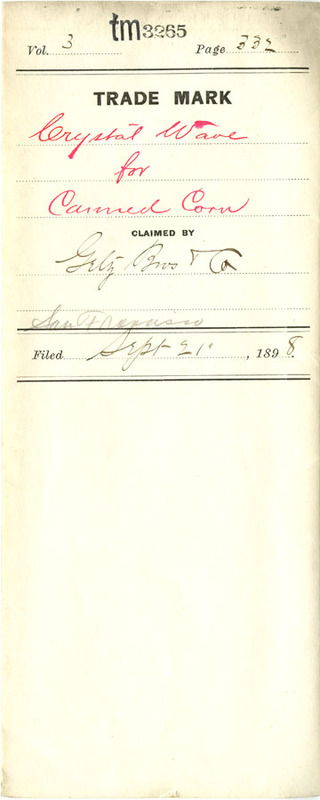 tm3265
Vol. 3 Page 332
TRADE MARK
Crystal Wave
for
Canned Corn
CLAIMED BY
Getz Bros & Co
San Francisco
Filed Sept 21, 1898.